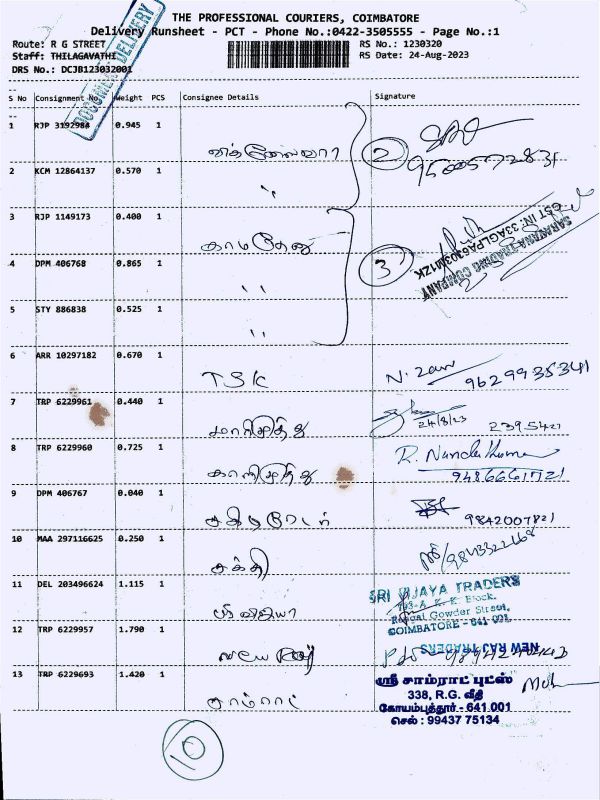 THE PROFESSIONAL COURIERS, COIMBATORE
Delivery Runsheet - PCT - Phone No.:0422-3505555 - Page No.:1
Route: R G STREET
RS No.: 1230320
Staff: THILAGAVATHI
RS Date: 24-Aug-2023
DRS No.: DCJB123032001
DOCUMENT DELIVERY
S No Consignment No Weight PCS Consignee Details Signature
1 RJP 3192984 0.945 1
2
9500572831
2 KCM 12864137 0.570 1
"
3 RJP 1149173 0.400 1
காமதேனு
SARAVANA TRADING COMPANY
GST IN: 33AGLPA6303M1ZK
3
4 DPM 406768 0.865 1
"
5 STY 886838 0.525 1
"
6 ARR 10297182 0.670 1
TSK
9629935341
7 TRP 6229961 0.440 1
மாரிமுத்து
24/8/23
2395421
8 TRP 6229960 0.725 1
காளிமுத்து
R. Nandakumar
9486661721
9 DPM 406767 0.040 1
9842007821
10 MAA 297116625 0.250 1
சக்தி
9843322668
11 DEL 203496624 1.115 1
ஸ்ரீ விஜயா
SRI VIJAYA TRADERS
193-A K. K. Block,
Rangai Gowder Street,
COIMBATORE - 641 001.
12 TRP 6229957 1.790 1
NEW RAJ TRADERS
13 TRP 6229693 1.420 1
சாம்ராட்
ஸ்ரீ சாம்ராட் புட்ஸ்
338, R.G. வீதி
கோயம்புத்தூர் - 641 001
செல் : 99437 75134
10